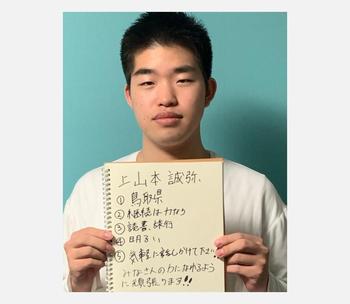 上山本 誠弥
① 鳥取県
② 継続は力なり
③ 読書、旅行
④ 明るい
⑤ 気軽に話しかけて下さい!
みなさんのわになれるよう
に頑張ります!!